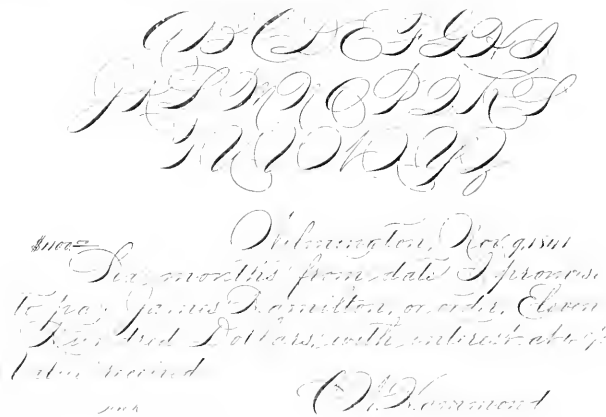 A B C D E F G H I
J K L M N O P Q R S
T U V W X Y Z
$1100
Wilmington, Nov. 9, 18
Six months from date I promise
to pay James Hamilton, or order, Eleven
Hundred Dollars, with interest at
received
Hammond